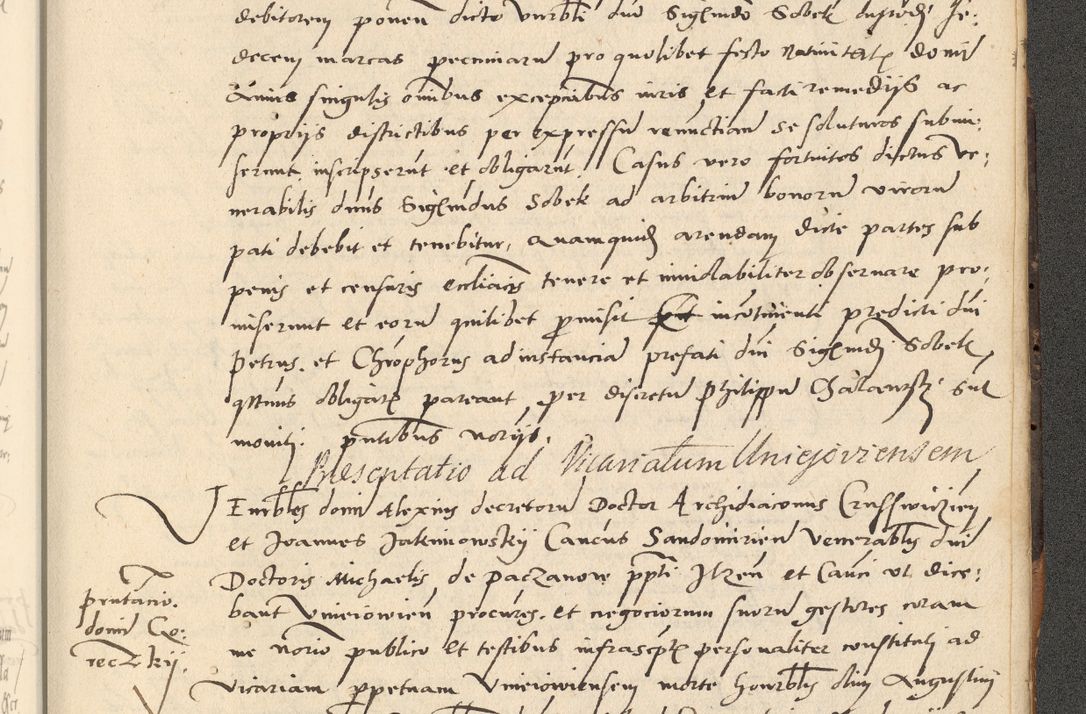 debitorem ponen dicto Vnrbli dno Sigismdo Sobek
decem marcas pecuniarum pro quolibet festo Nativitatis domini
Quinis singulis omnibus exceptionibus iuris et facti remedijs ac
proprijs districtibus per expressum renunctiam se soluturos submi:
serunt inscripserunt et obligarunt. Casus vero fortuitos dictus Ve:
nerabilis dnus Sigismdus Sobek ad arbitrium bonorum virorum
pati debebit et tenebitur, Quamquidem arendam dicte partes sub
penis et censuris eccliacis tenere et inuiolabiliter obseruare pro:
miserunt et eorum quilibet promisit incontinenti predicti dni
Petrus et Chrophorus ad instanciam prefati dni Sigismdi Sobek
obligari pareant per discretum Philippum
moniti. pntibus norijs.
Presentatio ad Vicariatum Uniejoviensem
Venrbles domini Alexius decretorum Doctor Archidiaconus Crusswicien
et Joannes Jakimowskij Cancus Sandomirien Venerablis dni
Doctoris Michaelis de Paczanow ppti et Canci ut dice:
bant Vnieiowien procures et negociorum suorum gestores coram
me norio publico et testibus infrascptis personaliter constituti ad
Vicariam perpetuam Vnieiowiensem morte honrblis olim Augustini
pntacio.
domini Go:
reczkij.